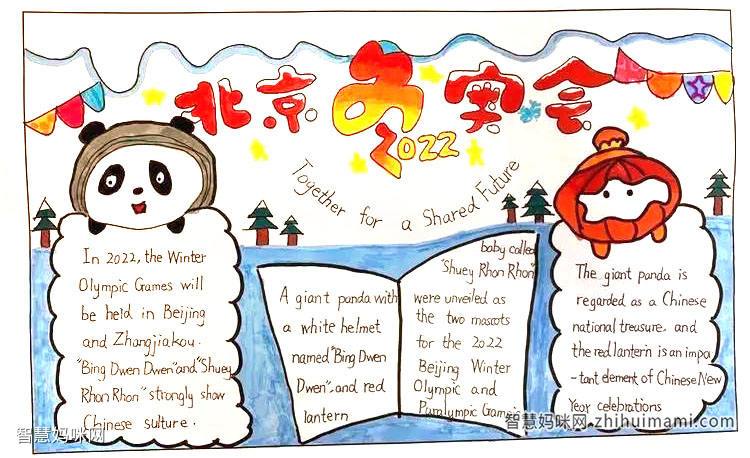 北京冬奥会
2022
Together for a Shared Future
In 2022, the Winter
Olympic Games will
be held in Beijing
and Zhangjiakou.
"Bing Dwen Dwen" and "Shuey
Rhon Rhon" strongly show
Chinese sulture.
A giant panda with
a white helmet
named "Bing Dwen
Dwen", and red
lantern
baby called
"Shuey Rhon Rhon"
were unveiled as
the two mascots
for the 2022
Beijing Winter
Olympic and
Paralympic Games
The giant panda is
regarded as a Chinese
national treasure. and
the red lantern is an impo
-tant element of Chinese New
Year celebrations
智慧妈咪网
智慧妈咪网.zhihuimami.com